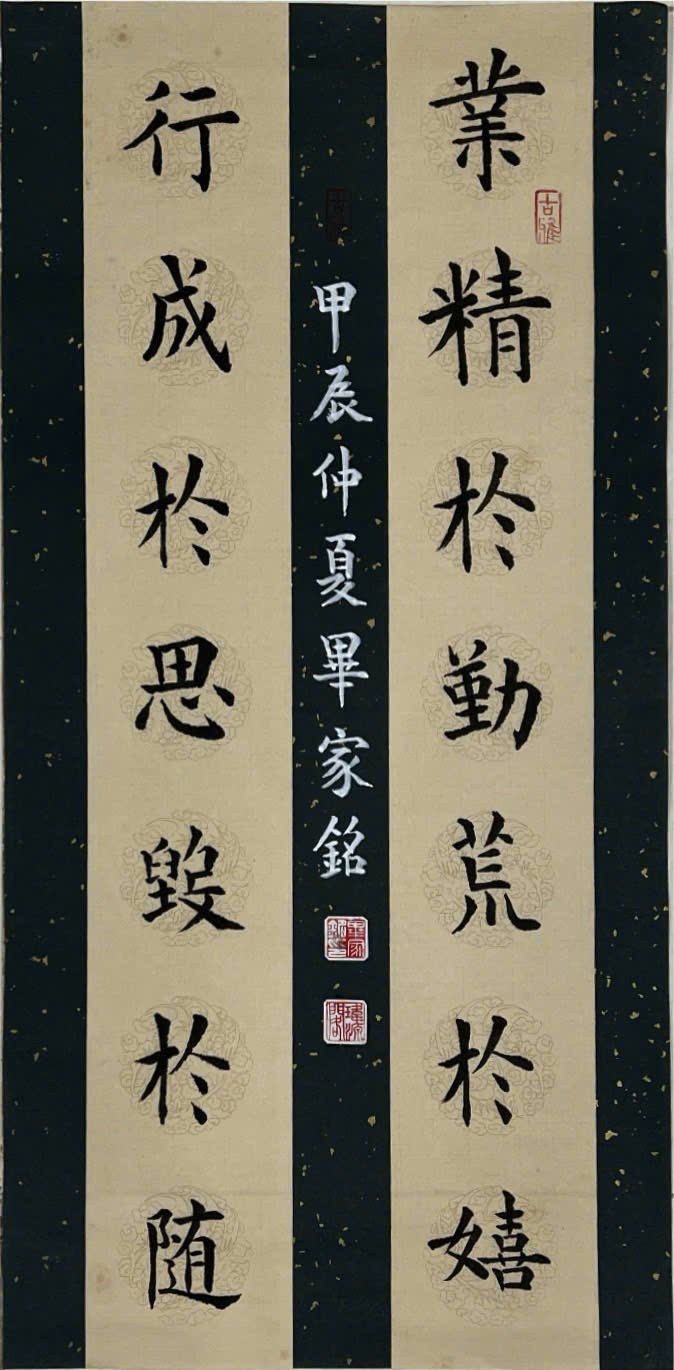 業精於勤荒於嬉
行成於思毀於随
甲辰仲夏畢家銘